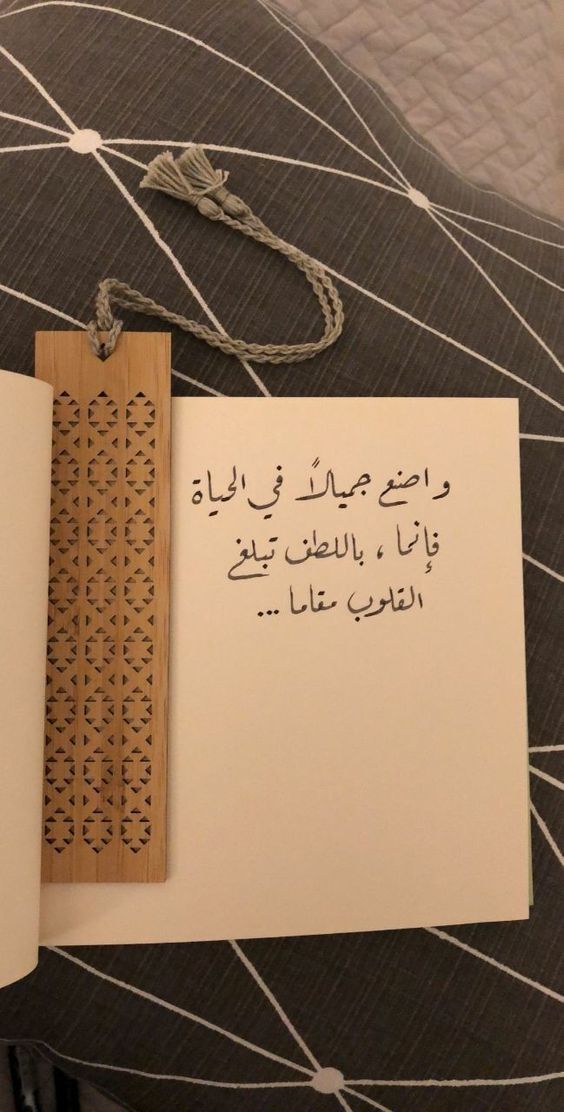 واصنع جميلاً في الحياة
فإنما ، باللطف تبلغ
القلوب مقاما ...